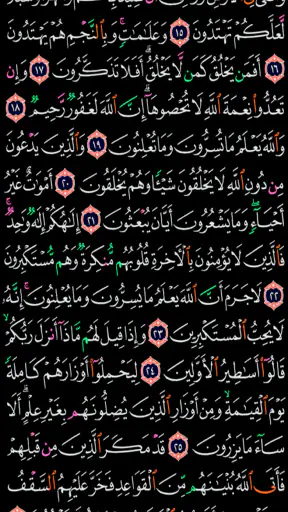 لَّعَلَّكُمْ تَهْتَدُونَ ١٥ وَعَلَٰمَٰتٍ ۚ وَبِٱلنَّجْمِ هُمْ يَهْتَدُونَ
١٦ أَفَمَن يَخْلُقُ كَمَن لَّا يَخْلُقُ ۗ أَفَلَا تَذَكَّرُونَ ١٧ وَإِن
تَعُدُّوا۟ نِعْمَةَ ٱللَّهِ لَا تُحْصُوهَآ ۗ إِنَّ ٱللَّهَ لَغَفُورٌ رَّحِيمٌ ١٨
وَٱللَّهُ يَعْلَمُ مَا تُسِرُّونَ وَمَا تُعْلِنُونَ ١٩ وَٱلَّذِينَ يَدْعُونَ
مِن دُونِ ٱللَّهِ لَا يَخْلُقُونَ شَيْـًٔا وَهُمْ يُخْلَقُونَ ٢٠ أَمْوَٰتٌ غَيْرُ
أَحْيَآءٍ ۖ وَمَا يَشْعُرُونَ أَيَّانَ يُبْعَثُونَ ٢١ إِلَٰهُكُمْ إِلَٰهٌ وَٰحِدٌ ۚ
فَٱلَّذِينَ لَا يُؤْمِنُونَ بِٱلْءَاخِرَةِ قُلُوبُهُم مُّنكِرَةٌ وَهُم مُّسْتَكْبِرُونَ
٢٢ لَا جَرَمَ أَنَّ ٱللَّهَ يَعْلَمُ مَا يُسِرُّونَ وَمَا يُعْلِنُونَ ۚ إِنَّهُۥ
لَا يُحِبُّ ٱلْمُسْتَكْبِرِينَ ٢٣ وَإِذَا قِيلَ لَهُم مَّاذَآ أَنزَلَ رَبُّكُمْ ۙ
قَالُوٓا۟ أَسَٰطِيرُ ٱلْأَوَّلِينَ ٢٤ لِيَحْمِلُوٓا۟ أَوْزَارَهُمْ كَامِلَةً
يَوْمَ ٱلْقِيَٰمَةِ ۙ وَمِنْ أَوْزَارِ ٱلَّذِينَ يُضِلُّونَهُم بِغَيْرِ عِلْمٍ ۗ أَلَا
سَآءَ مَا يَزِرُونَ ٢٥ قَدْ مَكَرَ ٱلَّذِينَ مِن قَبْلِهِمْ
فَأَتَى ٱللَّهُ بُنْيَٰنَهُم مِّنَ ٱلْقَوَاعِدِ فَخَرَّ عَلَيْهِمُ ٱلسَّقْفُ